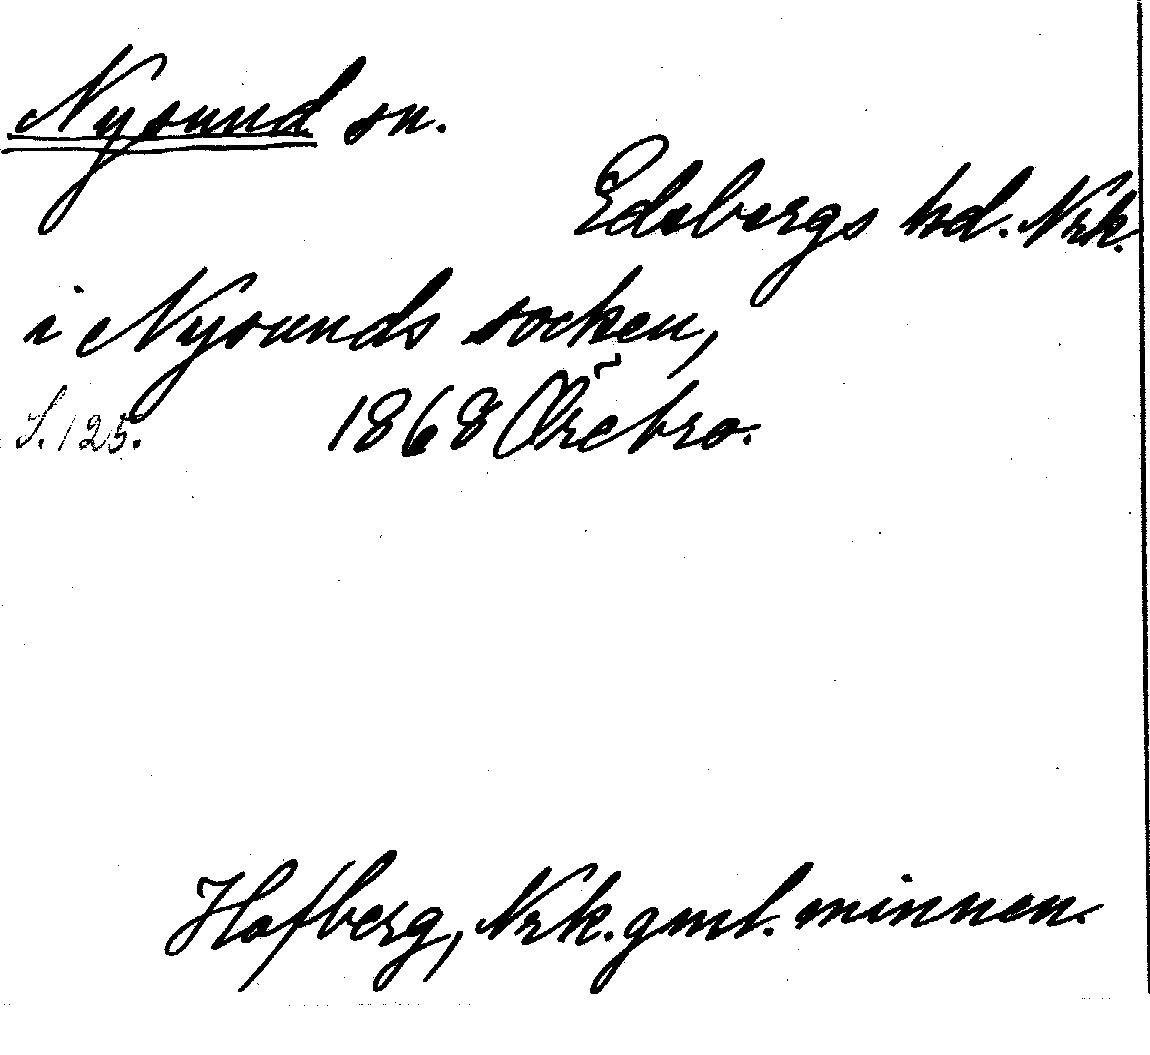 Nysund sn.
Edsbergs hd. Nrk.
i Nysunds socken,
S. 125. 1868 Örebro.
Hofberg, Nrk. gml. minnen.